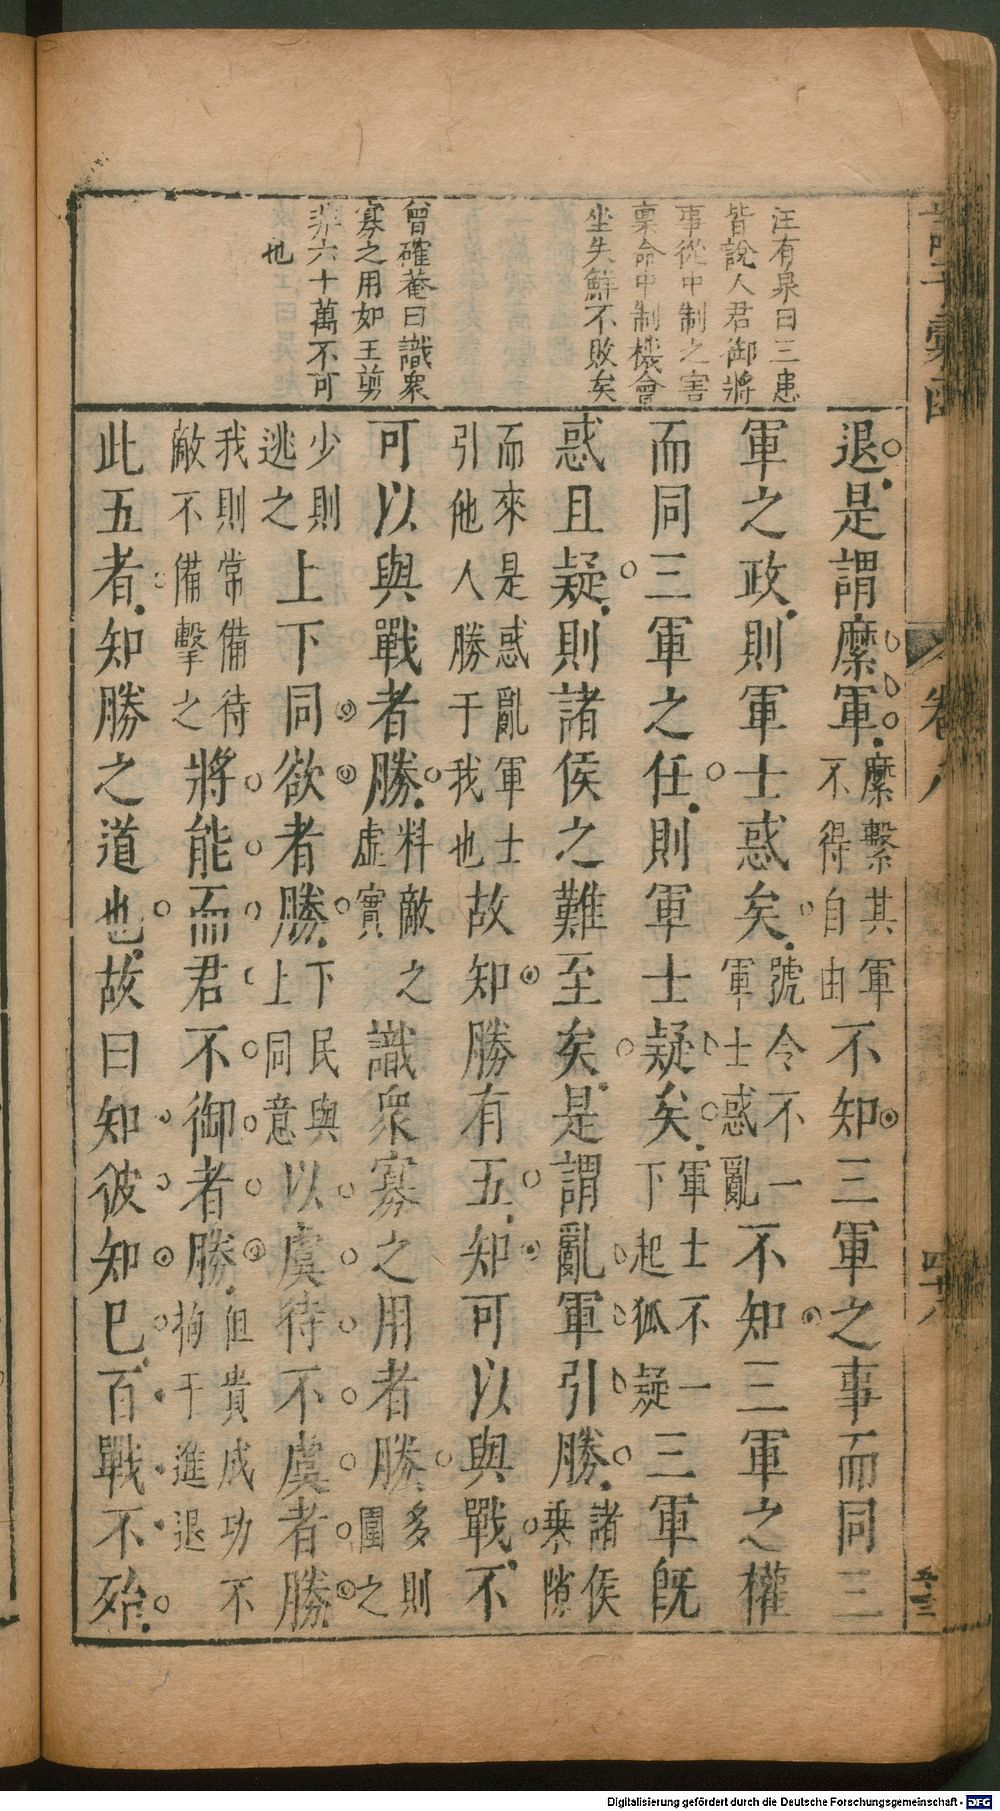 汪有泉曰三患
皆說人君御將
事從中制之害
稟命中制機會
坐失鮮不敗矣
曾確菴曰識衆
寡之用如王剪
非六十萬不可
也
退是謂縻軍縻繫其軍不得自由不知三軍之事而同三
軍之政則軍士惑矣號令不一軍士惑亂不知三軍之權
而同三軍之任則軍士疑矣軍士不一下起狐疑三軍旣
惑且疑則諸侯之難至矣是謂亂軍引勝諸侯乗隙
而來是惑亂軍士引他人勝于我也故知勝有五知可以與戰不
可以與戰者勝料敵之虛實識衆寡之用者勝多則圍之
少則逃之上下同欲者勝下民與上同意以虞待不虞者勝
我則常備待敵不備擊之將能而君不御者勝但貴成功不拘于進退
此五者知勝之道也故曰知彼知已百戰不殆
彙函
卷八
四十八
五十三
Digitalisierung gefördert durch die Deutsche Forschungsgemeinschaft - DFG